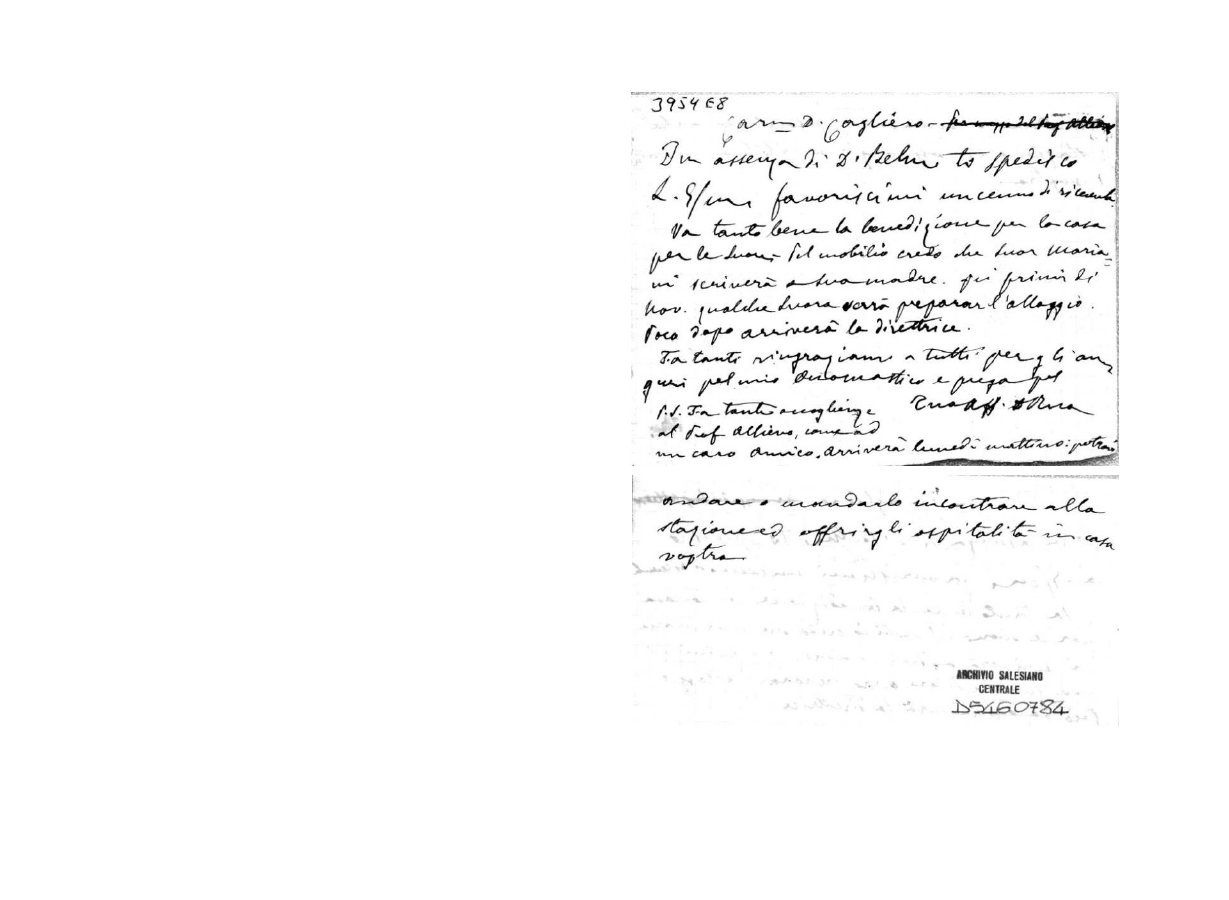 3954 E8
Car.mo D. Cagliero -
In assenza di D. Belm. to spedisco
L. favoriscimi un cenno di ricevuta
Va tanto bene la benedizione per la casa
per le Suore. Pel mobilio credo che Suor Maria
mi scriverà a sua madre. primi di
Nov. qualche Suora verrà preparar l'alloggio.
Poco dopo arriverà la direttrice.
Fa tanti ringraziam. a tutti per gli au
guri pel mio Onomastico e prega pel
Tuo Aff. D Rua
P.S. Fa tante accoglienze
al Prof Allievo, come ad
un caro amico. Arriverà lunedì mattino: potrai
andare o mandarlo incontrare alla
stazione ed offrirgli ospitalità in casa
vostra
ARCHIVIO SALESIANO
CENTRALE
D5460784